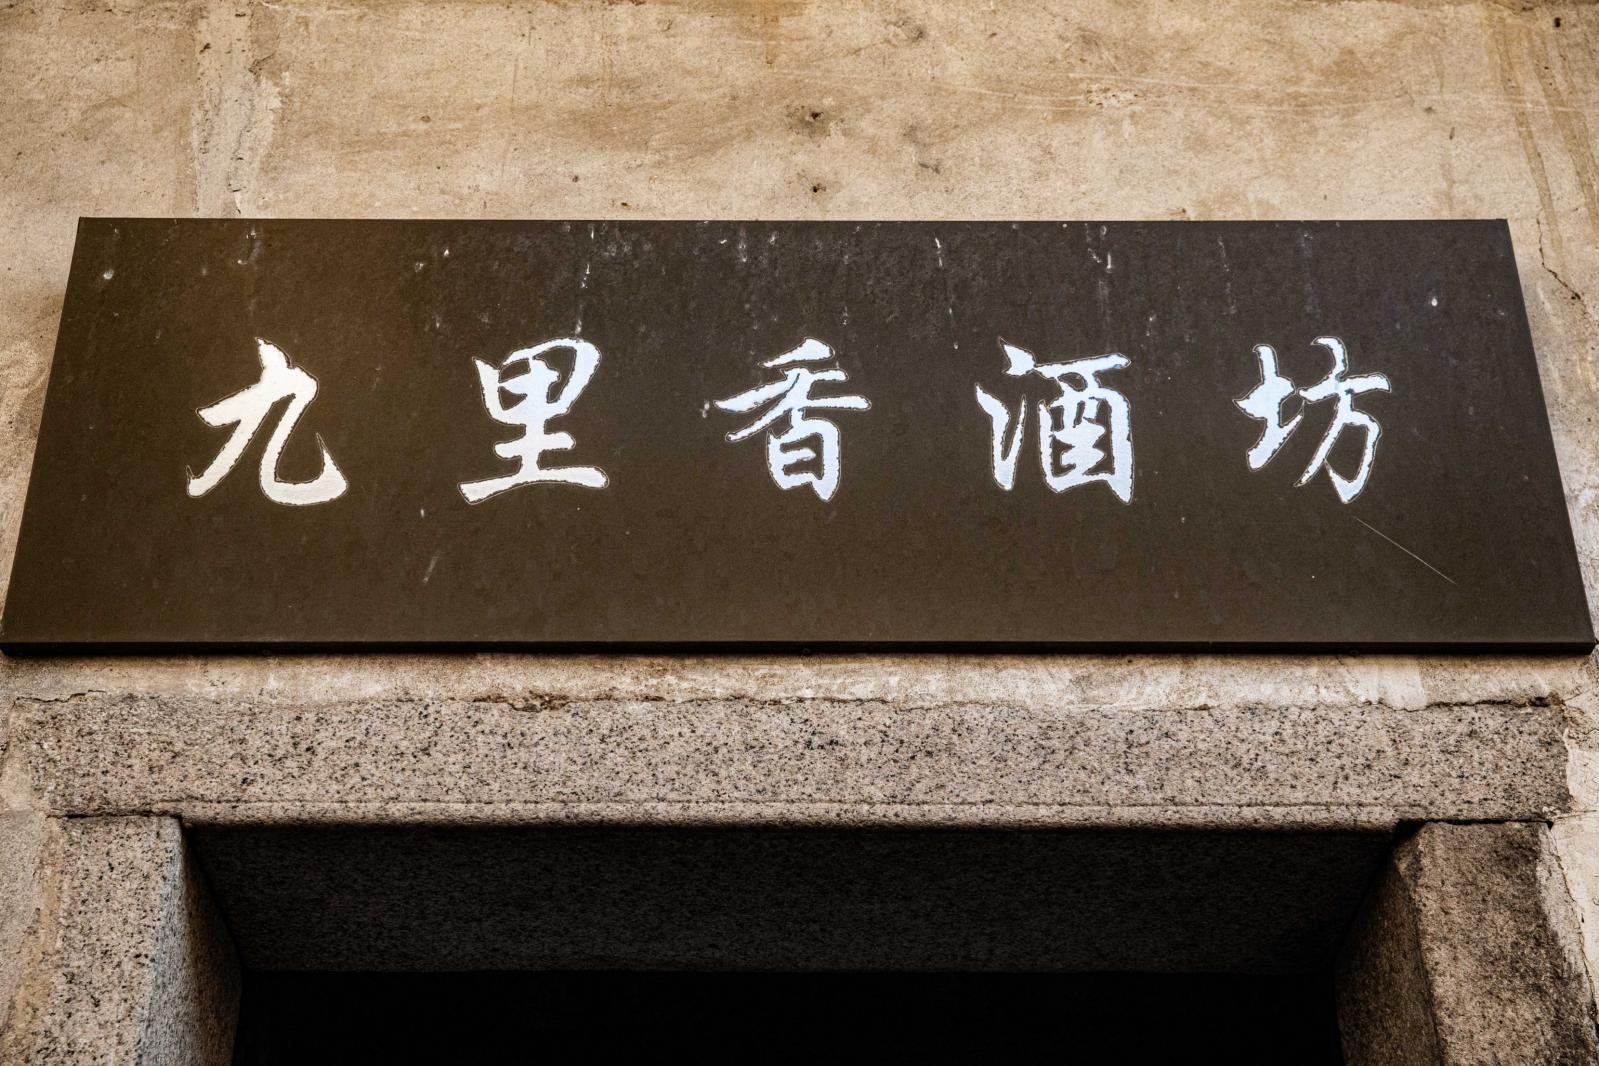 九里香酒坊